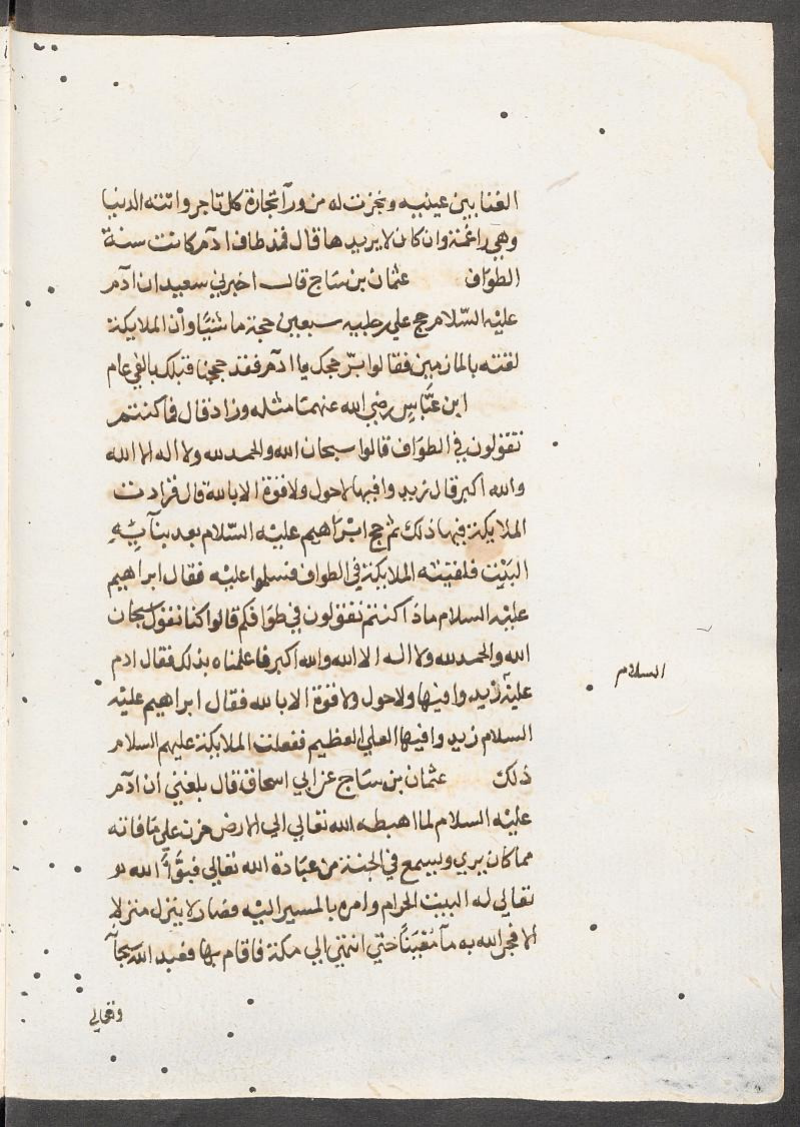 الغنا بين عينيه ونجزت له من ورآ تجارة كل تاجر واتته الدنيا
وهي راغمة وان كان لا يريدها قال فمذ طاف ادٓم كانت سنة
الطوّاف عثمان بن سّاج قال اخبرني سعيد ان ادٓم
عليْه السّلام حج علي رجليه سبعين حجة ماشيًا وأن الملايكة
لقته بالمازمين فقالوا برّ حجك يا ادٓم فقد حججنا قبلك بالفي عام
ابن عبَّاسٍ رضي الله عنهما مثله وزاد قال فما كنتم
تقولون في الطوّاف قالوا سبحان الله والحمد لله ولا اله الا الله
والله اكبر قال زيدوا فيها لا حول ولا قوة الا بالله قال فزادت
الملايكة فيها ذلك ثم حج ابْرَاهيم عليْه السّلام بعد بنآيِهِ
البَيْت فلقيته الملايكة في الطواف فسلموا عليْه فقال ابراهيم
عليْه السلام ماذا كنتم تقولون في طوَافكم قالوا كنا نقول سبحان
الله والحمد لله ولا اله الا الله والله اكبر فاعلمناه بذلك فقال ادم
عليْه زيدوا فيها ولا حول ولا قوة الا بالله فقال ابراهيم عليْه
السلام
السلام زيدوا فيها العلي العظيم ففعلت الملايكة عليهم السلام
ذلك عثمان بن سّاج عن ابي اسحاق قال بلغني ان ادٓم
عليْه السلام لما اهبطه الله تعالي الي الارض حزن علي مَا فاته
مما كان يري ويسمع في الجنة من عبَادة الله تعالي فبوَّأ الله
تعالى له البيت الحرام وامره بالمسير اليْه فصار لا ينزل منزلا
الا فجر الله به مآ مَعِينًا حتي انتهي الي مكة فاقام بها فعبد الله سبحانه
وتعالي